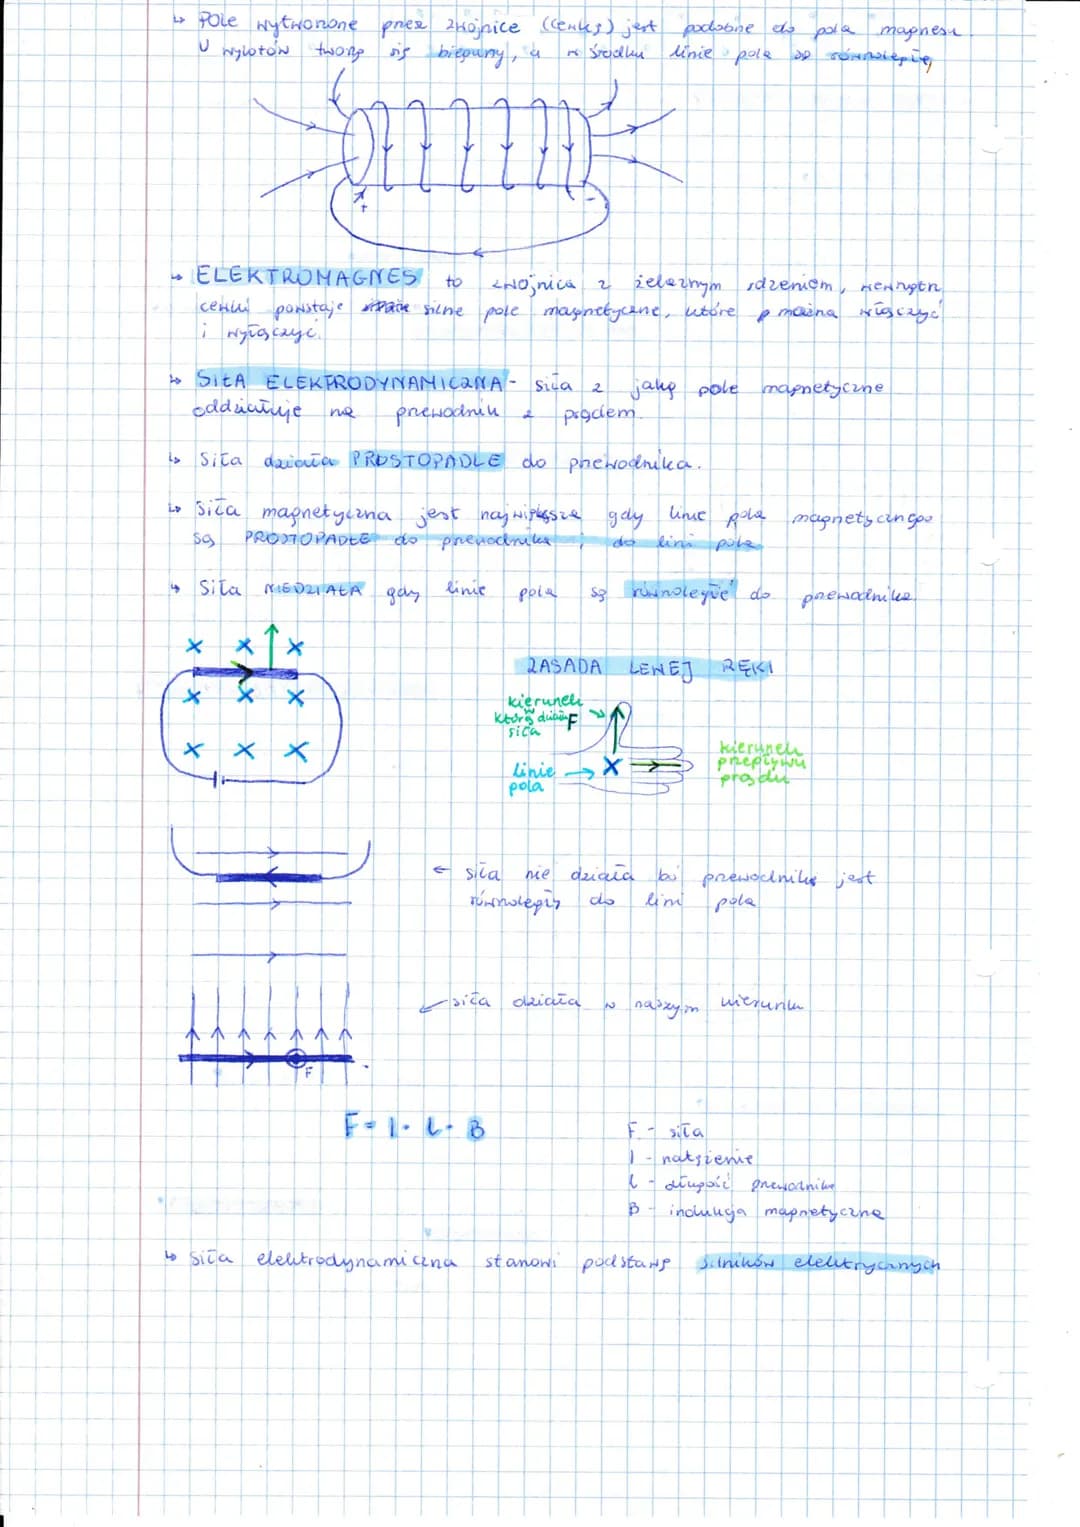 ↳ Pole wytworzone przez zwojnice (cewkę) jest podobne do pola magnesu.
U wylotów tworzą się bieguny, a w środku linie pola są równoległe
+
-
→ ELEKTROMAGNES to zwojnica z żelaznym rdzeniem, wewnątrz
cewki powstaje silne pole magnetyczne, które można włączyć
i wyłączyć.
↳ SIŁA ELEKTRODYNAMICZNA - siła z jaką pole magnetyczne
oddziałuje na przewodnik z prądem.
↳ Siła działa PROSTOPADLE do przewodnika.
↳ Siła magnetyczna jest największa gdy linie pola magnetycznego
są PROSTOPADŁE do przewodnika i do lini pola
↳ Siła NIEDZIAŁA gdy linie pola są równoległe do przewodnika.
ZASADA LEWEJ RĘKI
kierunek
którą działa F
siła
linie
pola
kierunek
przepływu
prądu
← siła nie działa bo przewodnik jest
równoległy do lini pola
siła działa w naszym kierunku
F
F = I · l · B
F - siła
I - natężenie
l - długość przewodnika
B - indukcja magnetyczna
↳ Siła elektrodynamiczna stanowi podstawę silników elektrycznych